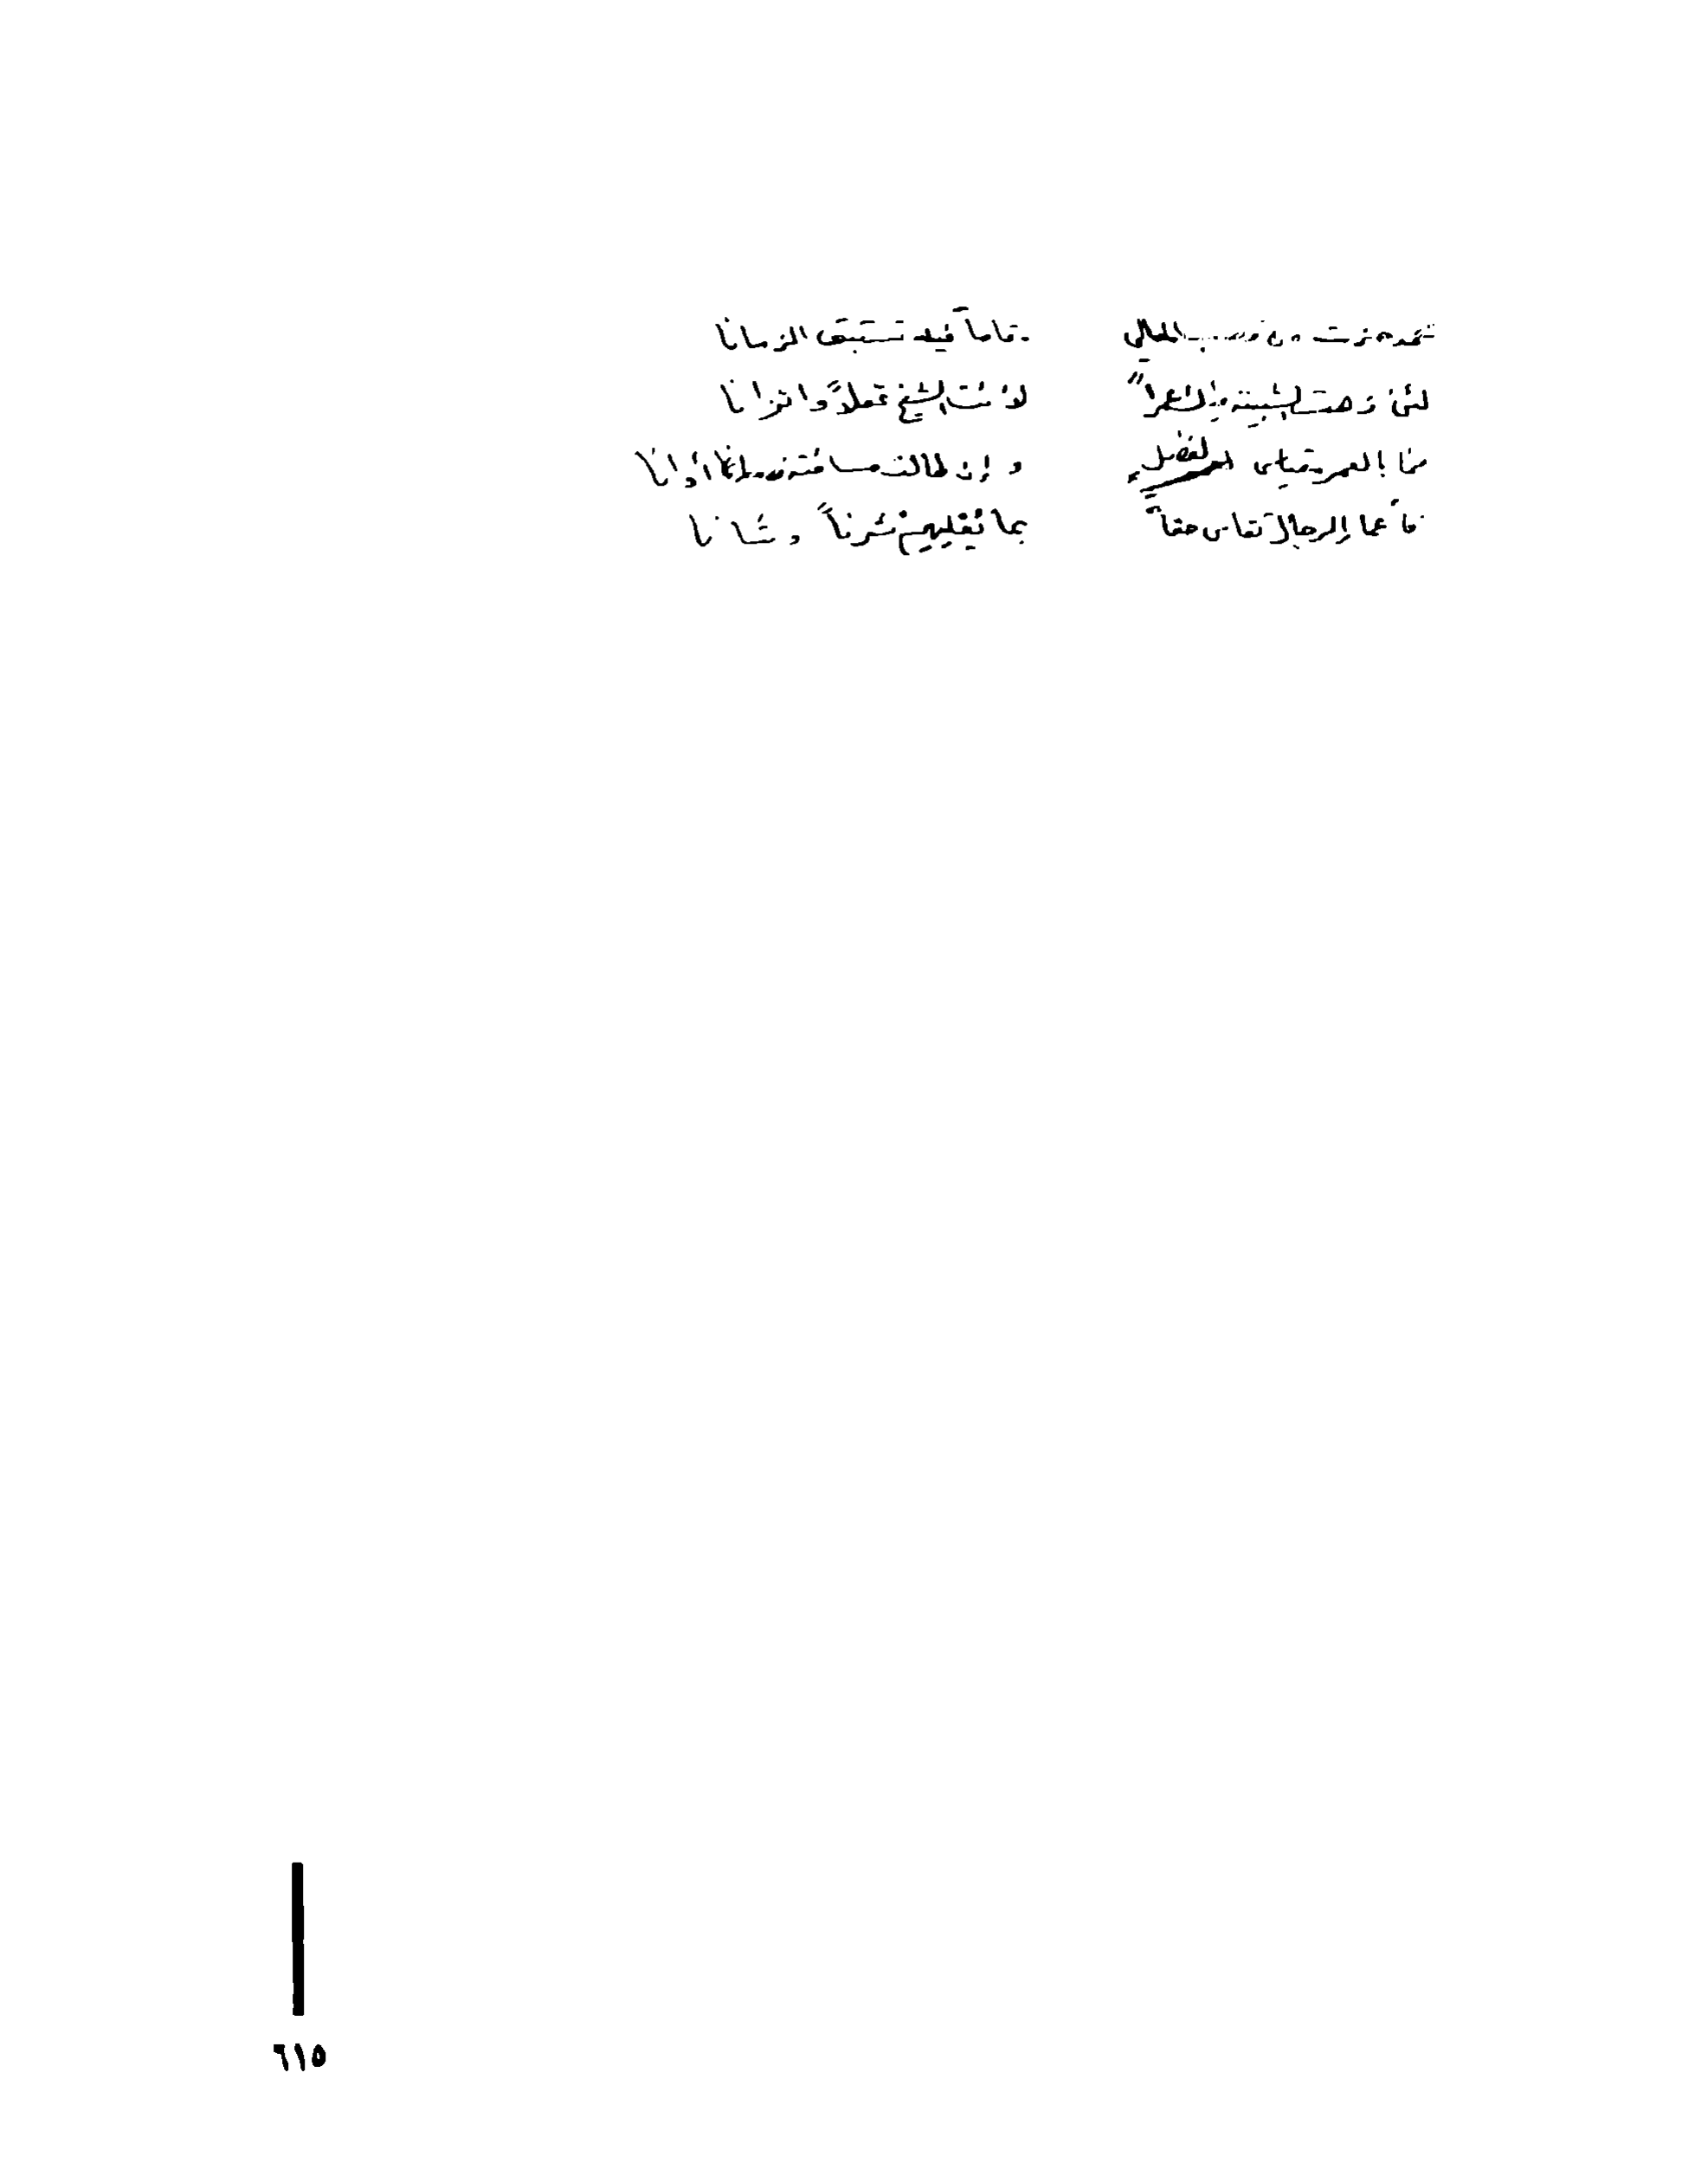 فقد حزت من قصب المعالي مقاماً فيه تستبق الزمانا
لئن زهت الشبيبة فيك عمراً لأنت الشيخ عقلاً واتزانا
فما بالعمر مقياس لفضلٍ وإن طالت مسافته أوانا
فأعمار الرجال تقاس حقاً بما تعليهم شرفاً وشانا
٦١٥